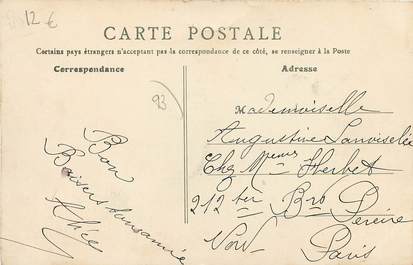 12 €
CARTE POSTALE
Certains pays étrangers n'acceptant pas la correspondance de ce côté, se renseigner à la Poste
Correspondance
Adresse
93
Bon
Baisers
Alice
Mademoiselle
Augustine
Chez Mme Herbet
212 ter Bro Pereire
Paris